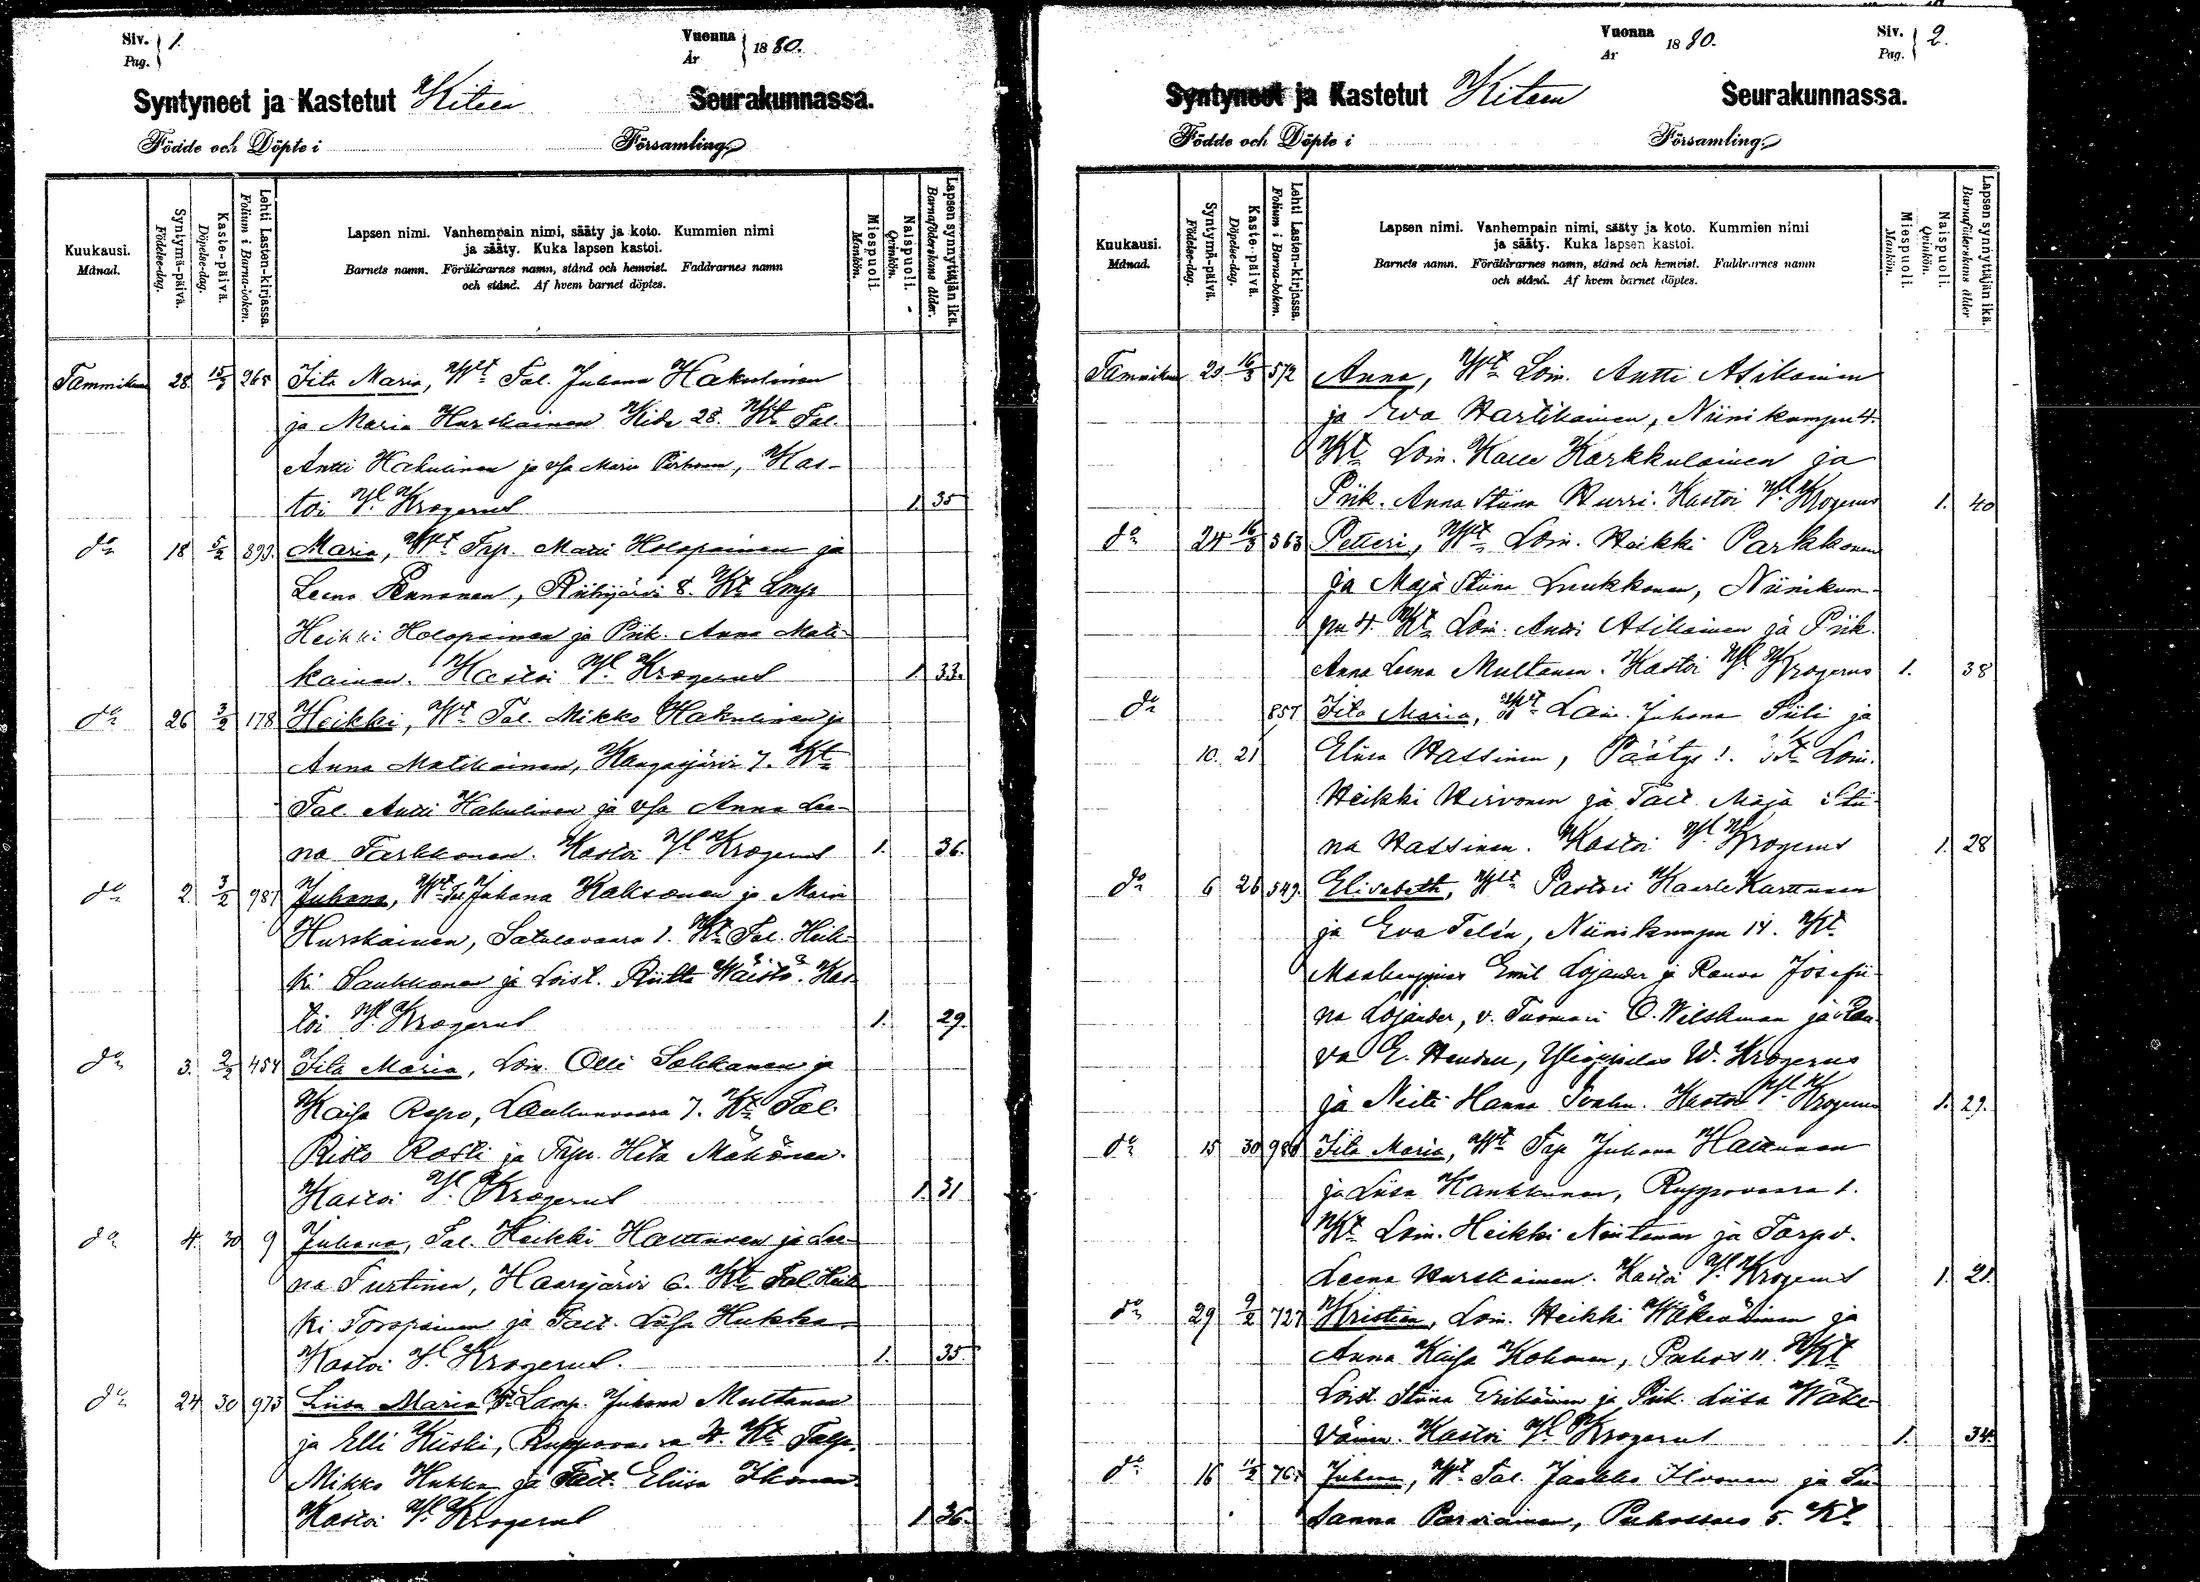 Siv. 1.
Pag.
Vuonna 1880.
År
Syntyneet ja Kastetut Kiteen Seurakunnassa.
Födde och Döpte i Församling
Kuukausi. Månad.
Syntymä-päivä. Födelse-dag.
Kaste-päivä. Döpelse-dag.
Lehti Lasten-kirjassa. Folium i Barna-boken.
Lapsen nimi. Vanhempain nimi, sääty ja koto. Kummien nimi
ja sääty. Kuka lapsen kastoi.
Barnets namn. Föräldrarnes namn, stånd och hemvist. Faddrarnes namn
och stånd. Af hvem barnet döptes.
Miespuoli. Mankön.
Naispuoli. Qvinkön.
Lapsen synnyttäjän ikä. Barnaföderskans ålder.
Tammikuu 28. 15/3 265 Iita Maria, Wt Tal. Juhana Hakulinen
ja Maria Hurskainen Kide 28. Kt Tal.
Antti Hakulinen ja vsa Maria, Kas-
toi Vl. Krogerus 1. 35
do 18 5/2 899. Maria, Wt Trp. Matti Holopainen ja
Leena Pennanen, Riihijärvi 8. Kt Lmp
Heikki Holopainen ja Piik. Anna Mati-
kainen. Kastoi Vl. Krogerus 1. 33.
do 26 3/2 178 Heikki, Wt Tal. Mikko Hakulinen ja
Anna Matikainen, Kangasjärvi 7. Kt
Tal. Antti Hakulinen ja vsa Anna Lee-
na Tarkkonen. Kastoi Vl Krogerus 1. 36.
do 2 3/2 981 Juhana, Wt Juhana Kaksonen ja Maria
Hurskainen, Satulavaara 1. Kt Tal. Heik-
ki Saukkonen ja Loist. Riitta Wäistö. Kas-
toi Vl. Krogerus 1. 29.
do 3. 2/2 454 Iita Maria, Loin. Olli Sahkanen ja
Kaisa Repo, Laukunvaara 7. Kt Tal.
Risto Rasti ja Trpr. Heta Mähönen.
Kastoi Vl. Krogerus 1. 31
do 4. 30 9 Juhana, Tal. Heikki Hattunen ja Lee-
na Turtinen, Haarajärvi 6. Kt Tal. Heik-
ki Toropainen ja Tait. Liisa Hukka
Kastoi Vl. Krogerus. 1. 35.
do 24 30 973 Liisa Maria Wt Lamp. Juhana Multanen
ja Elli Kiiski, Ruppovaara 4. Kt Talp.
Mikko Hukka ja Tait. Eliisa Ikonen
Kastoi Vl. Krogerus 1 36.
Vuonna 1880.
År
Siv. 2.
Pag.
Syntyneet ja Kastetut Kiteen Seurakunnassa.
Födde och Döpte i Församling
Kuukausi. Månad.
Syntymä-päivä. Födelse-dag.
Kaste-päivä. Döpelse-dag.
Lehti Lasten-kirjassa. Folium i Barna-boken.
Lapsen nimi. Vanhempain nimi, sääty ja koto. Kummien nimi
ja sääty. Kuka lapsen kastoi.
Barnets namn. Föräldrarnes namn, stånd och hemvist. Faddrarnes namn
och stånd. Af hvem barnet döptes.
Miespuoli. Mankön.
Naispuoli. Qvinkön.
Lapsen synnyttäjän ikä. Barnaföderskans ålder
Tammikuu 20 16/3 572 Anna, Wt Loin. Antti Asikainen
ja Eva Hartikainen, Niinikumpu 4.
Kt Loin. Kalle Karkkulainen ja
Piik. Anna Stiina Hurri. Kastoi Vl. Krogerus 1. 40
do 24 16/3 363 Petteri, Wt Loin. Heikki Parkkonen
ja Maja Stiina Luukkonen, Niinikum-
pu 4. Kt Loin. Antti Asikainen ja Piik.
Anna Leena Multanen. Kastoi Vl. Krogerus 1. 38
do 857 Iita Maria, Wt Loin. Juhana Siili ja
10. 21 Eliisa Hassinen, Päätye 1. Kt Loin.
Heikki Hirvonen ja Tait. Maja Stii-
na Hassinen. Kastoi Vl. Krogerus 1. 28
do 6 26 549. Elisabeth, Wt Pastori Kaarle Karttunen
ja Eva Telén, Niinikumpu 14. Kt
Maakauppias Emil Lojander ja Rouva Josefii-
na Lojander, v. Tuomari O. Wilskman ja Rou-
va E. , Ylioppilas W. Krogerus
ja Neiti Hanna . Kastoi Vl. Krogerus 1. 29.
do 15 30 980 Iita Maria, Wt Trp Juhana Hattunen
ja Liisa Kankkunen, Ruppovaara 1.
Kt Loin. Heikki Nontanen ja Torpv.
Leena Hurskainen. Kastoi Vl. Krogerus 1. 21.
do 29 9/2 727 Kristian, Loin. Heikki Wäkeväinen ja
Anna Kaisa Kohonen, Puhos 11. Kt
Loist. Stiina ja Piik. Liisa Wäke-
väinen. Kastoi Vl Krogerus 1. 34.
do 16 11/2 76 Juhana, Wt Tal. Jaakko Ilvonen ja Su-
sanna Parviainen, Puhossalo 5. Kt